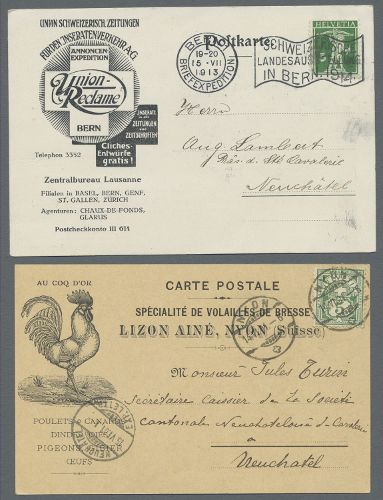 UNION SCHWEIZERISCH. ZEITUNGEN
FÜR DEN INSERATENVERKEHR A.G.
ANNONCEN
EXPEDITION
Union-
Reclame
BERN
INSERATE
in alle
ZEITUNGEN
und
ZEITSCHRIFTEN
Cliches-
Entwürfe
gratis!
Telephon 3352
Zentralbureau Lausanne
Filialen in BASEL, BERN, GENF,
ST. GALLEN, ZÜRICH
Agenturen: CHAUX-DE-FONDS,
GLARUS
Postcheckkonto III 614
Postkarte
BERN
19-20
15 · VII
1913
BRIEFEXPEDITION
SCHWEIZ.
LANDESAUSSTELLUNG
IN BERN 1914
Herrn
Aug. Lambert
Präs. d. Sté Cavalerie
Neuchâtel
AU COQ D'OR
CARTE POSTALE
SPÉCIALITÉ DE VOLAILLES DE BRESSE
LIZON AINÉ, NYON (Suisse)
NYON
NYON
POULETS & CANARDS
PIGEONS
ŒUFS
Monsieur Jules Turin
Secrétaire Caissier de la Société
Cantonale Neuchateloise de Cavalerie
à
Neuchatel